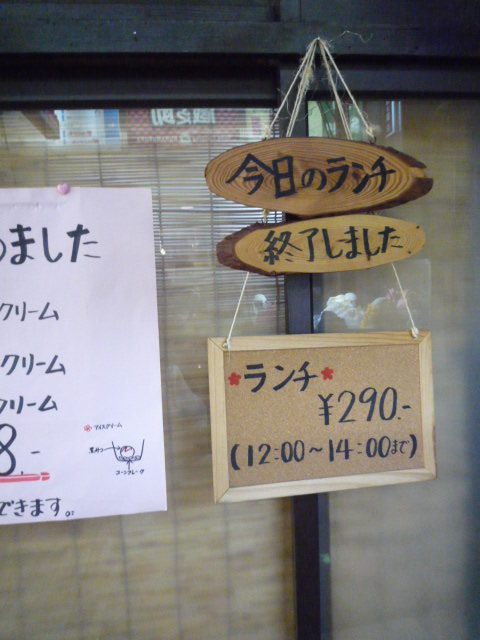 めました
クリーム
クリーム
クリーム
8.-
アイスクリーム
コーンフレーク
できます。
今日のランチ
終了しました
ランチ
¥290.-
(12:00～14:00まで)